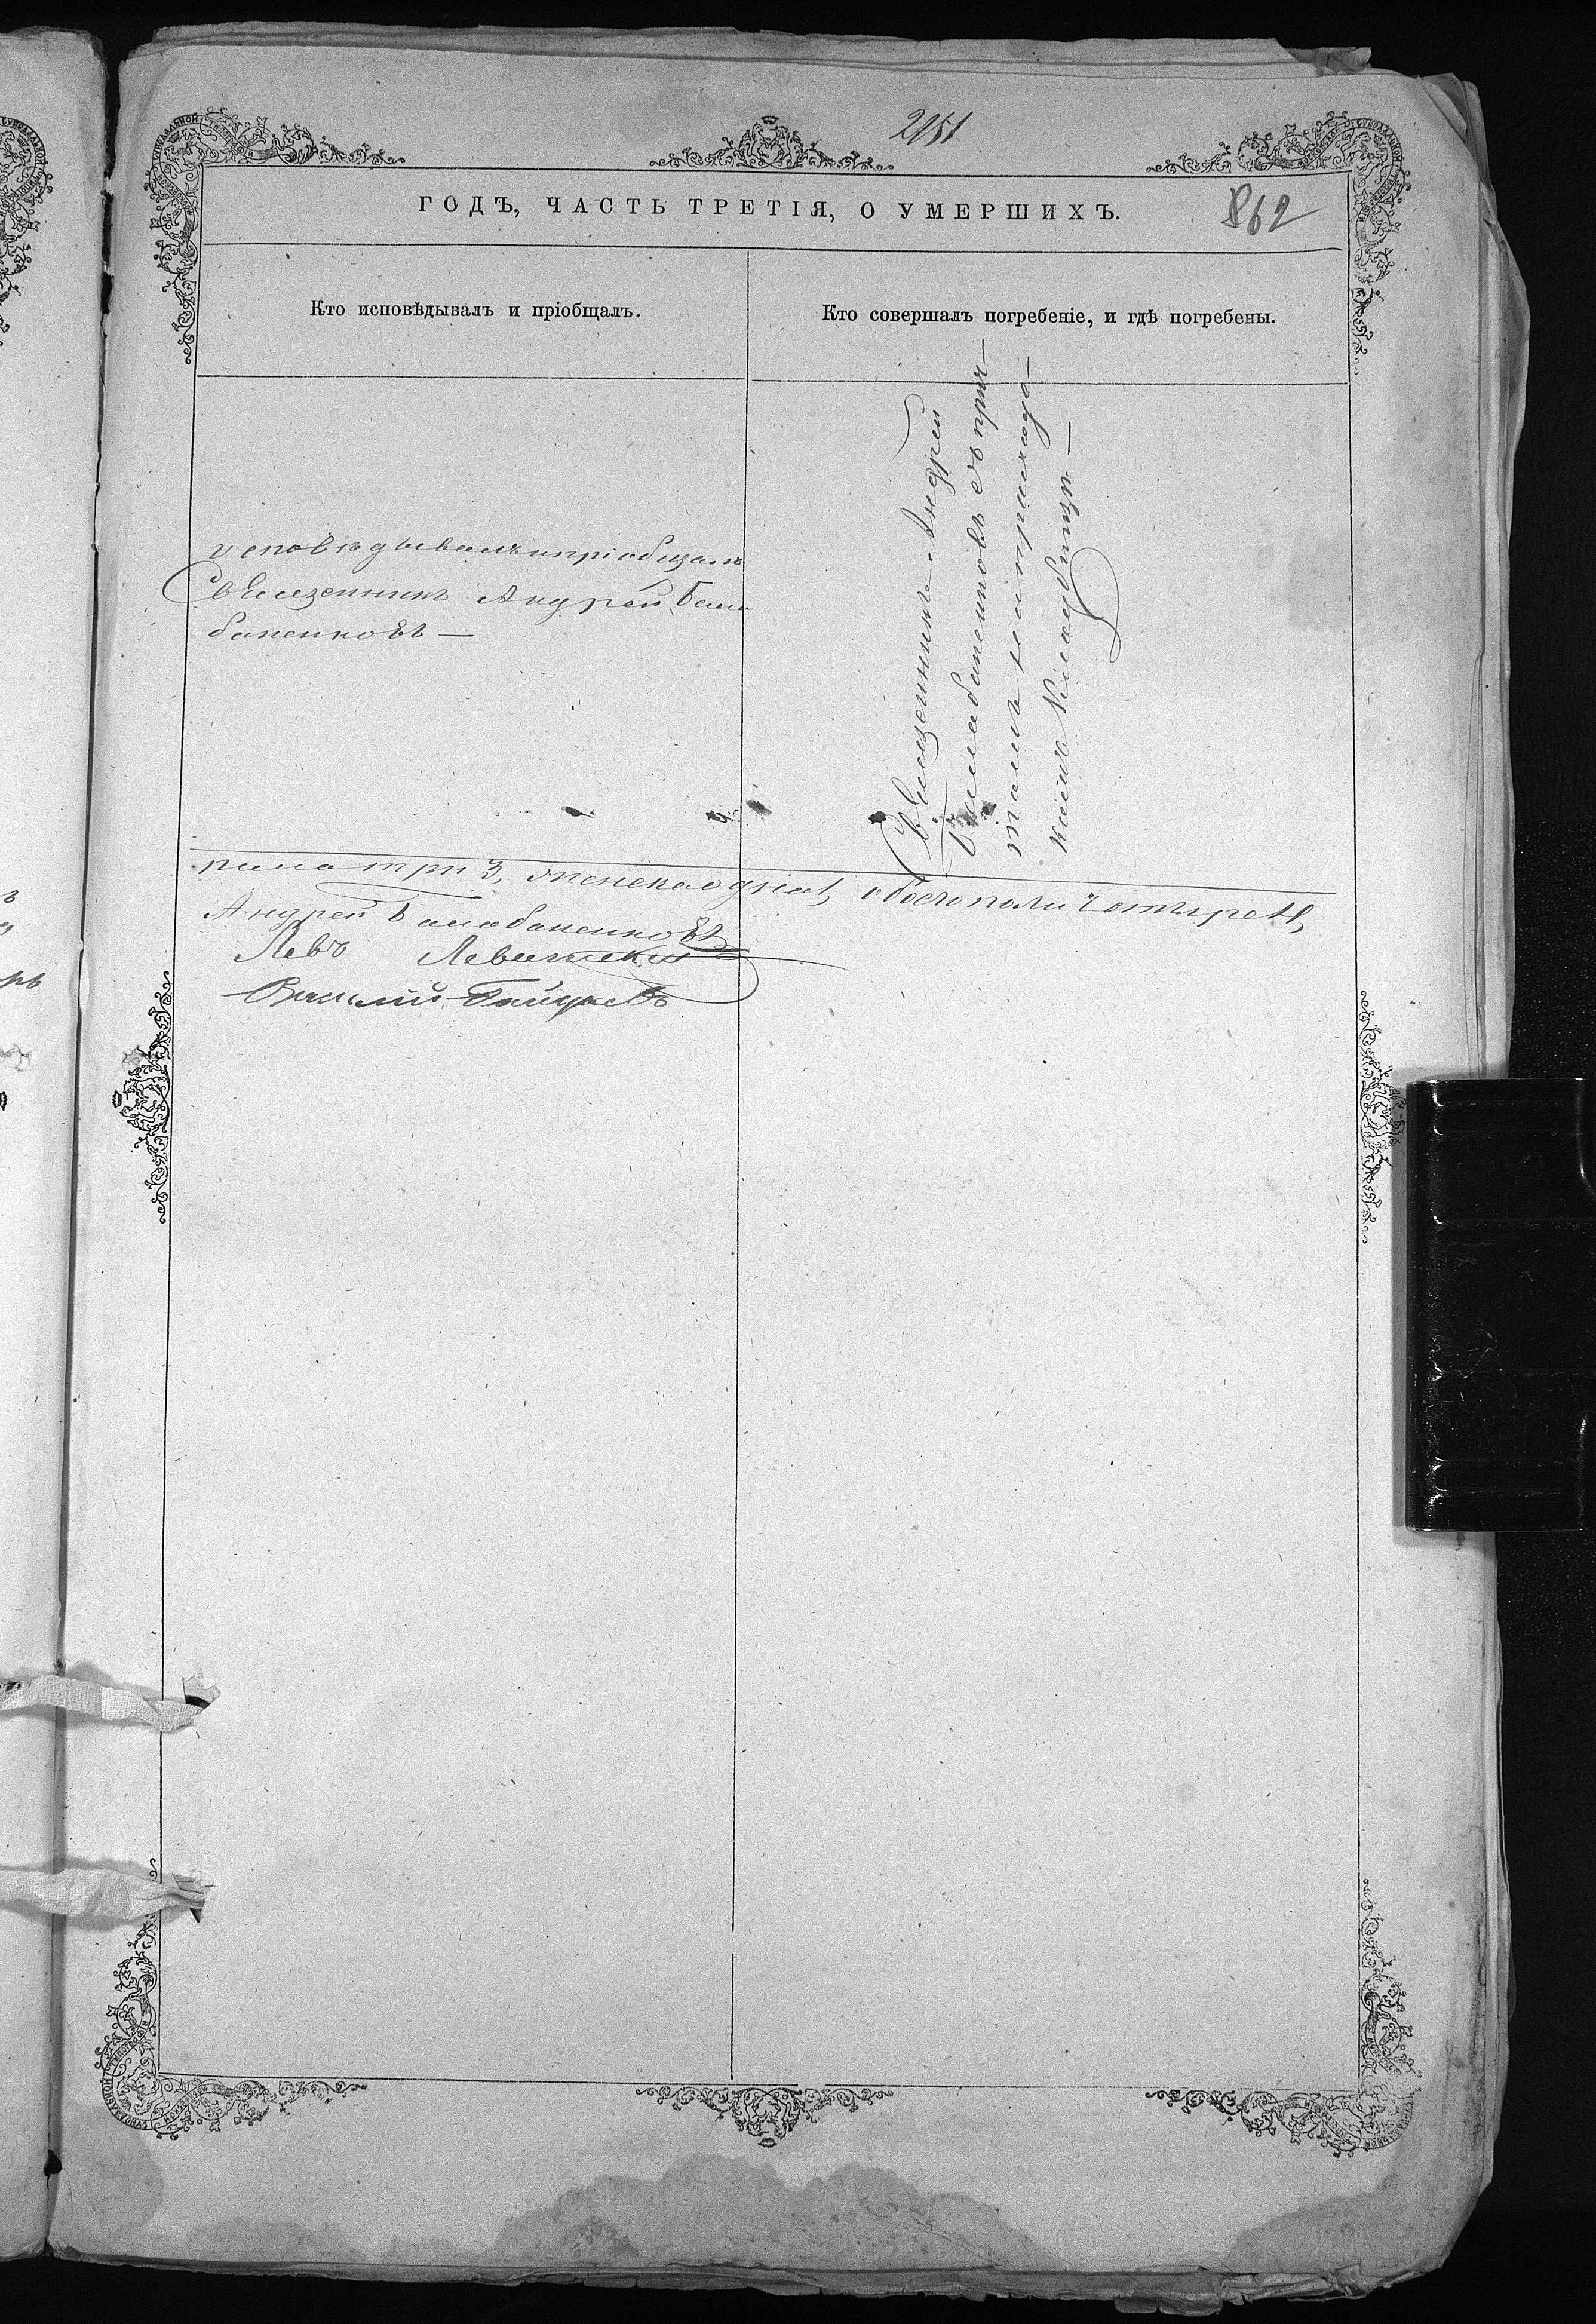 2151
862
ГОДЪ, ЧАСТЬ ТРЕТІЯ, О УМЕРШИХЪ.
Кто исповѣдывалъ и пріобщалъ.
Кто совершалъ погребеніе, и гдѣ погребены.
исповѣдывалъ и пріобщалъ
Священникъ Андрей Бала
баненковъ —
Священникъ Андрей
Балабаненковъ съ прич-
томъ на приходс-
комъ кладбищѣ —
пола три 3, женскаго одна 1, обоего пола четыре 4,
Андрей Балабаненковъ
Левъ Левитскій
Василій